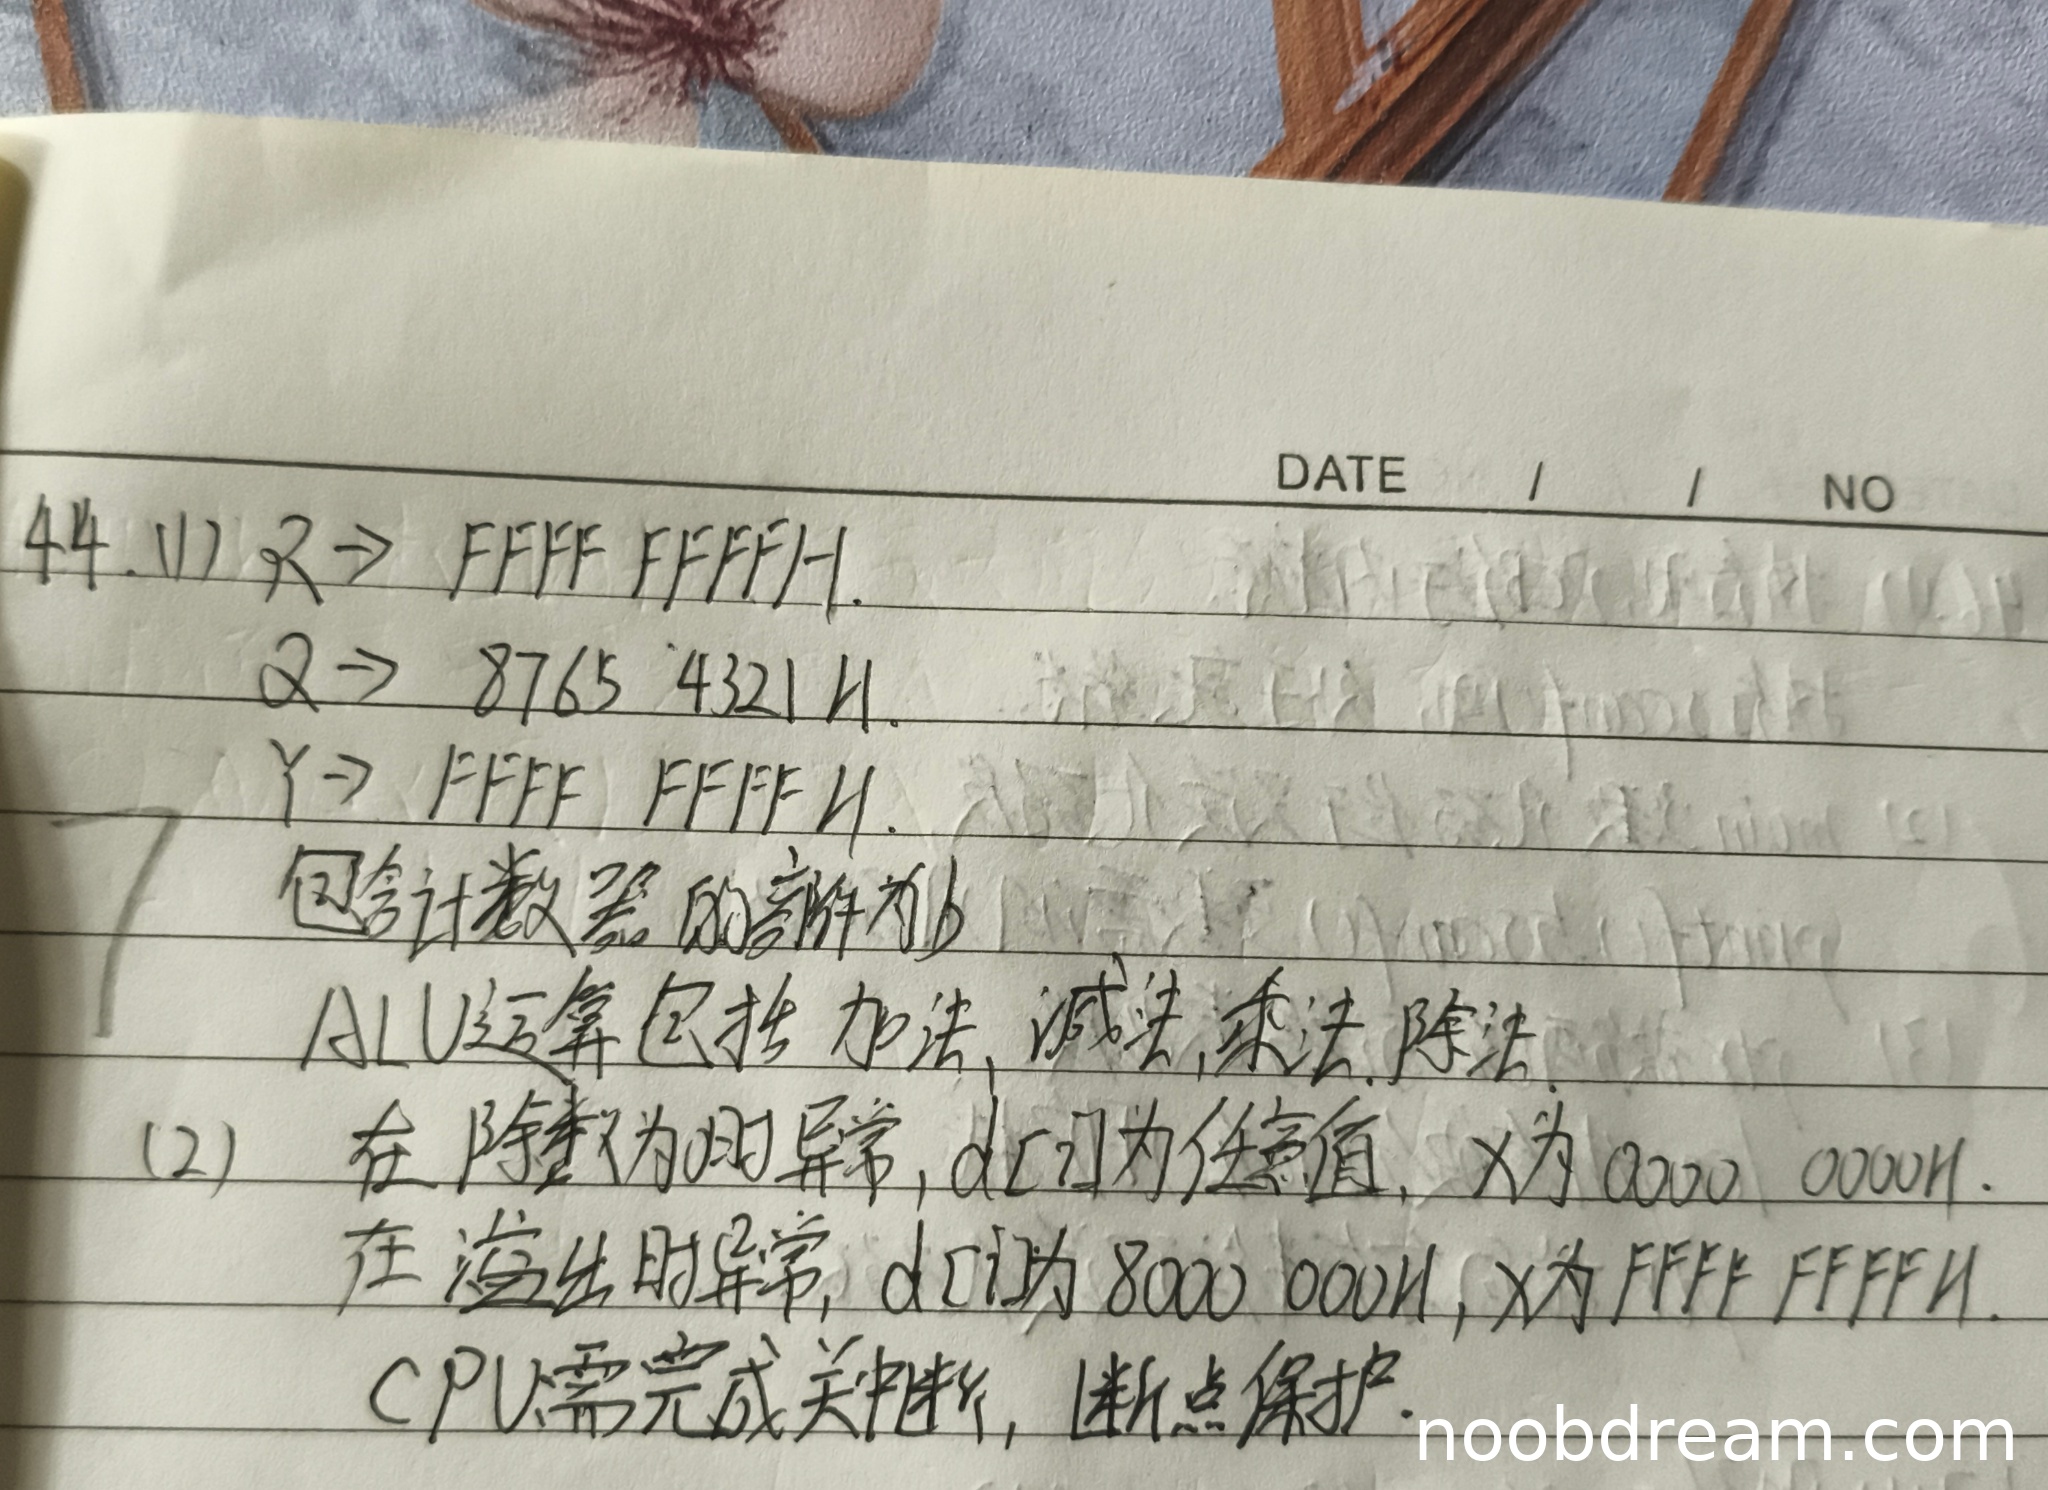 DATE / / NO
44.(1) R→ FFFF FFFFH.
Q→ 8765 4321H.
Y→ FFFF FFFFH.
包含计数器的部件为b
ALU运算包括 加法、减法,乘法.除法.
(2) 在除数为0时异常,d[i]为任意值,x为0000 0000H.
在溢出时异常,d[i]为8000 000H,x为FFFF FFFFH.
CPU需完成关中断,断点保护.
7
noobdream.com